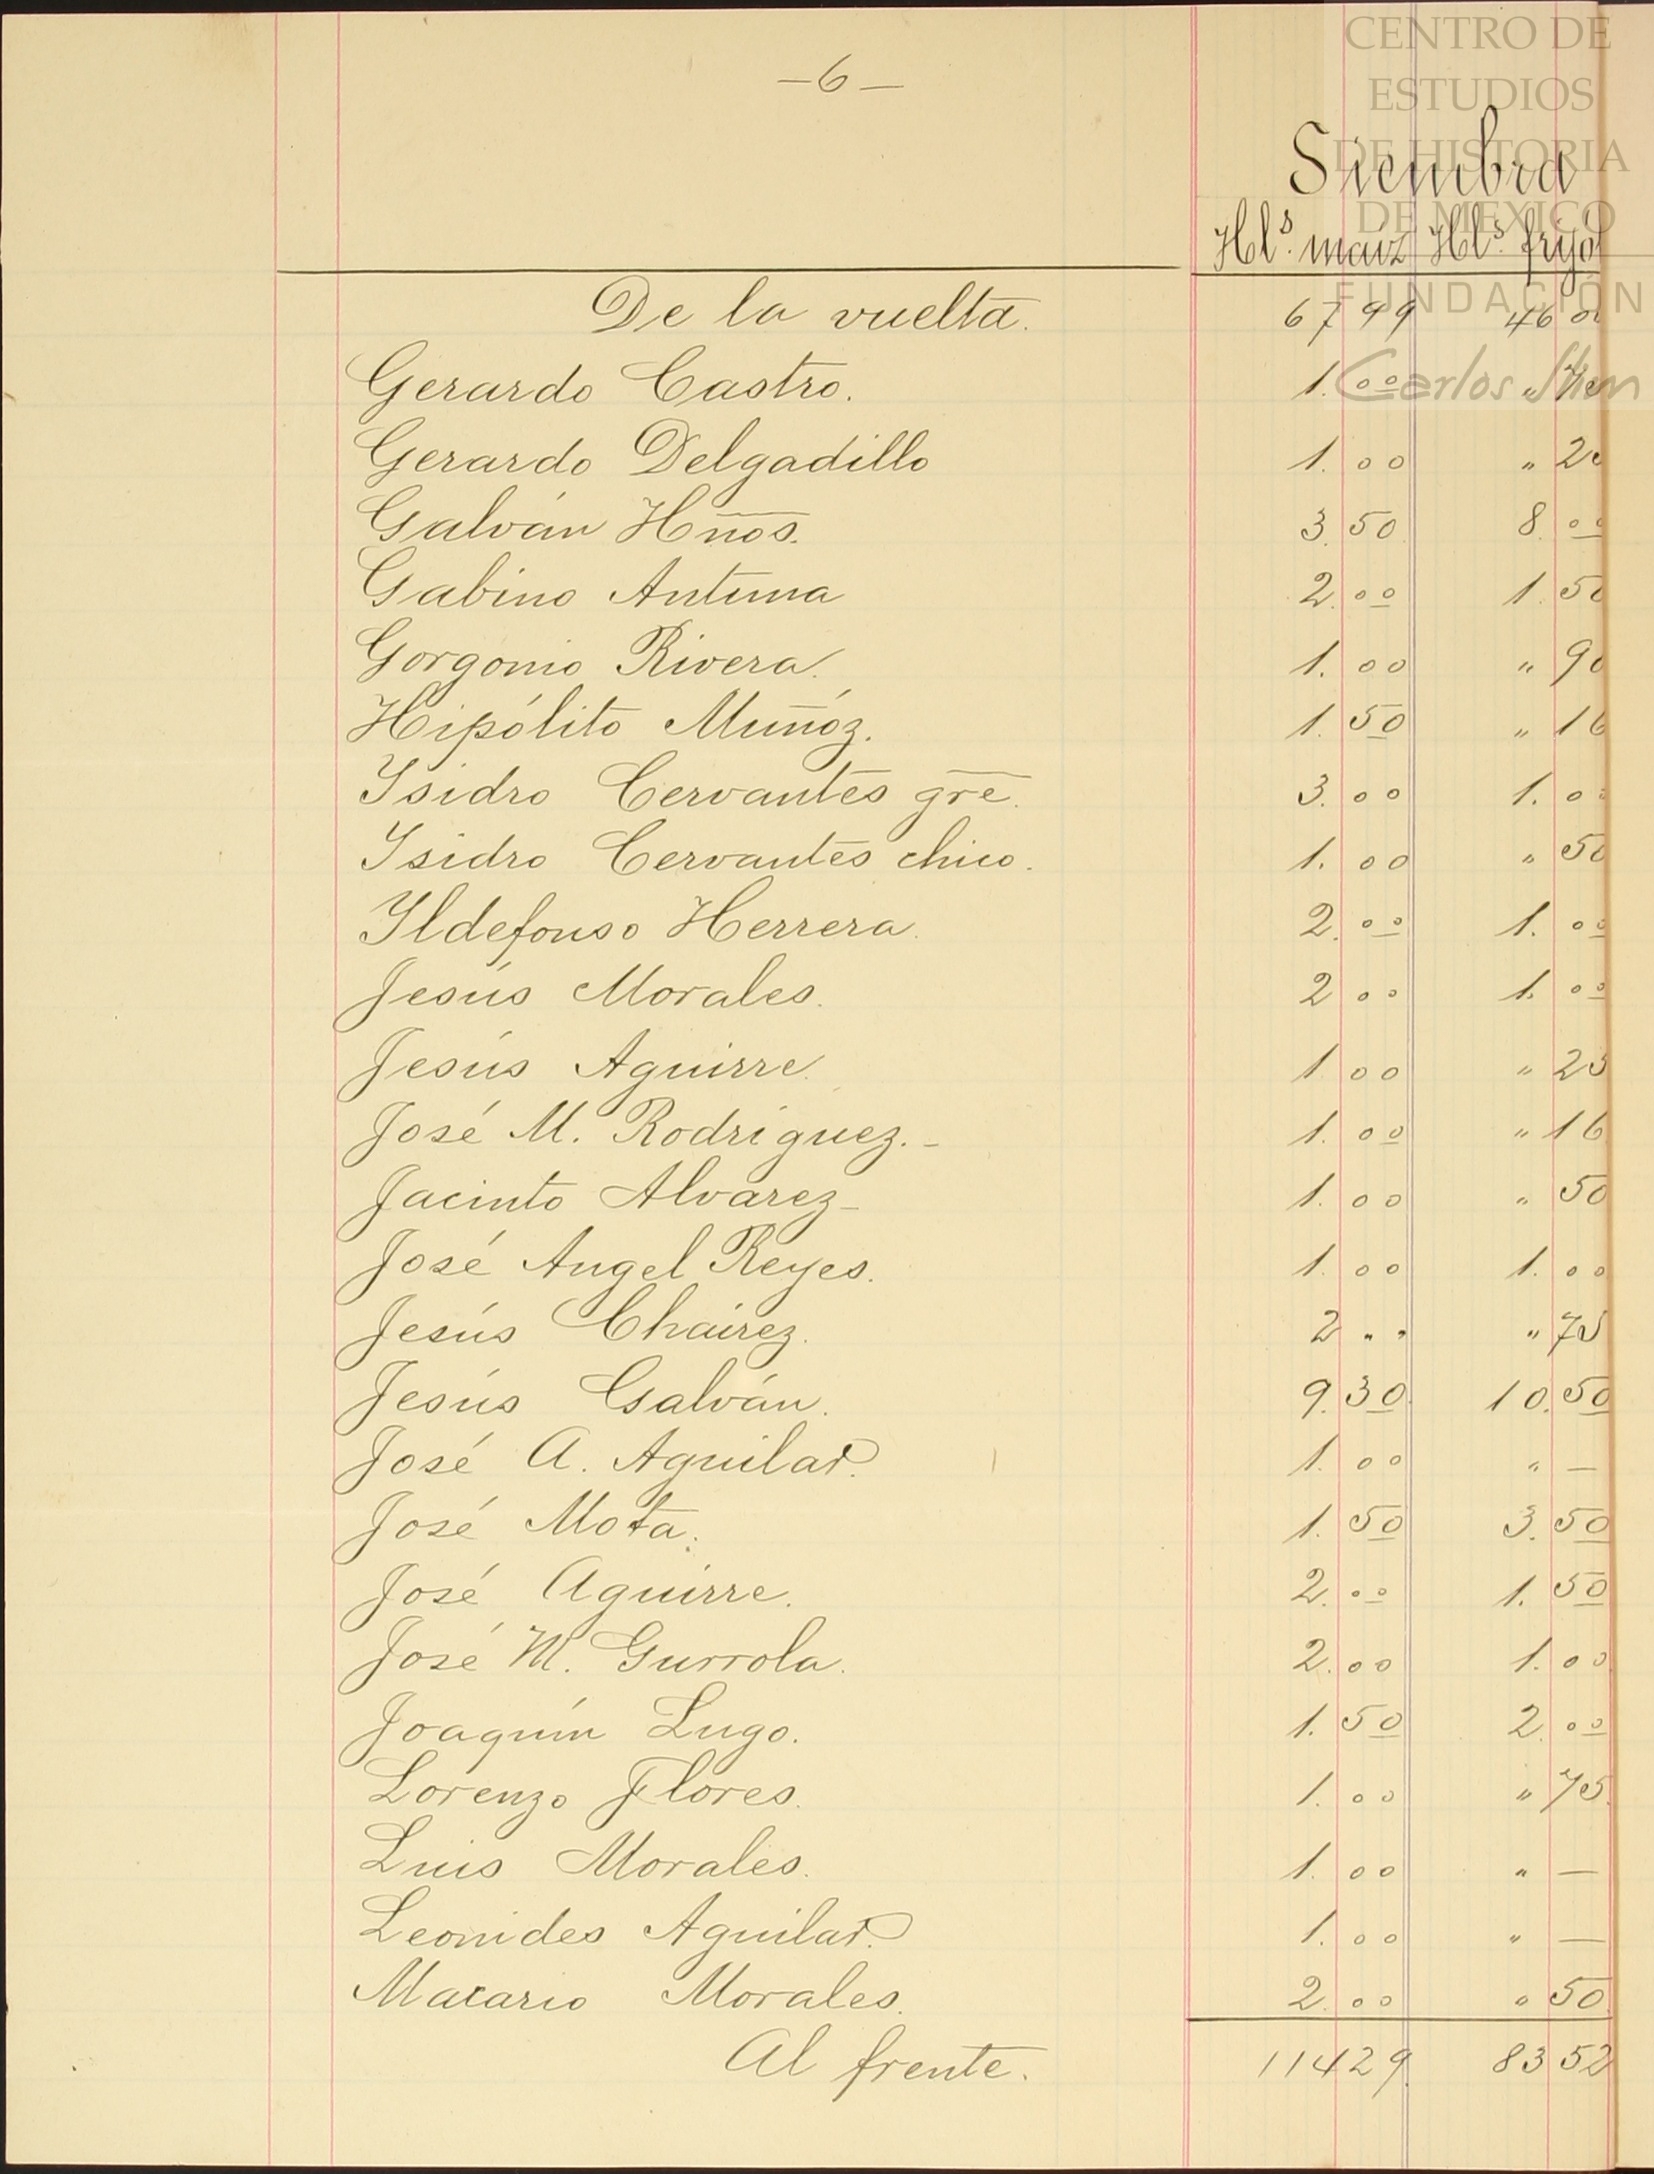 CENTRO DE
ESTUDIOS
DE HISTORIA
DE MEXICO
FUNDACIÓN
Carlos Slim
-6-
Siembra
Hls. maíz Hls. frijol
De la vuelta. 67 99 46
Gerardo Castro. 1. 00 "
Gerardo Delgadillo 1. 00 " 20
Galván Hños. 3. 50 8. 00
Gabino Antuna 2. 00 1. 50
Gorgonio Rivera. 1. 00 " 90
Hipólito Muñóz. 1. 50 " 16
Ysidro Cervantes gre. 3. 00 1. 00
Ysidro Cervantes chico. 1. 00 " 50
Yldefonso Herrera. 2. 00 1. 00
Jesús Morales. 2 00 1. 00
Jesús Aguirre. 1 00 " 25
José M. Rodríguez.- 1. 00 " 16
Jacinto Alvarez- 1. 00 " 50
José Angel Reyes. 1. 00 1. 00
Jesús Cháirez. 2 " " " 75
Jesús Galván. 9. 30 10. 50
José A. Aguilar. 1. 00 " —
José Mota. 1. 50 3. 50
José Aguirre. 2. 00 1. 50
José M. Gurrola. 2. 00 1. 00
Joaquín Lugo. 1. 50 2. 00
Lorenzo Flores. 1. 00 " 75
Luis Morales. 1. 00 " —
Leonides Aguilar. 1. 00 " —
Macario Morales. 2. 00 " 50
Al frente. 114 29 83 52